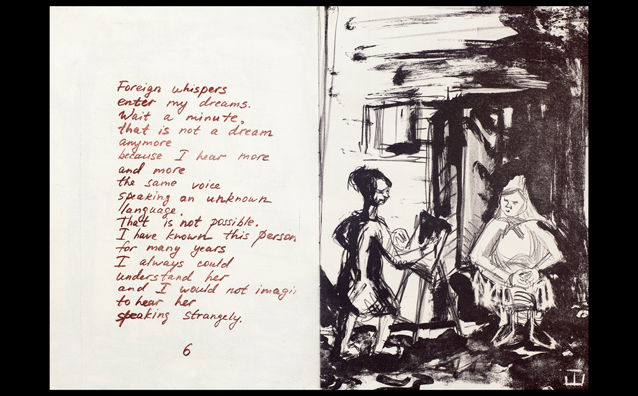 Foreign whispers
enter my dreams.
Wait a minute,
that is not a dream
anymore
because I hear more
and more
the same voice
speaking an unknown
language.
That is not possible.
I have known this person
for many years
I always could
understand her
and I would not imagi
to hear her
speaking strangely.
6